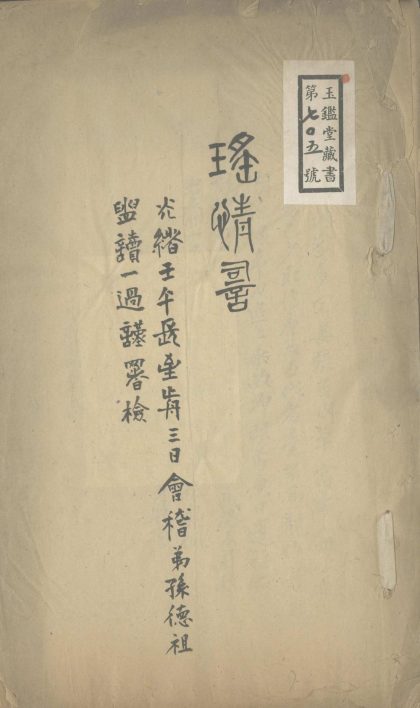 玉鑑堂藏書
第七〇五號
瑤情䛐
光緒壬午長至歬三日會稽弟孫德祖
盥讀一過謹署檢